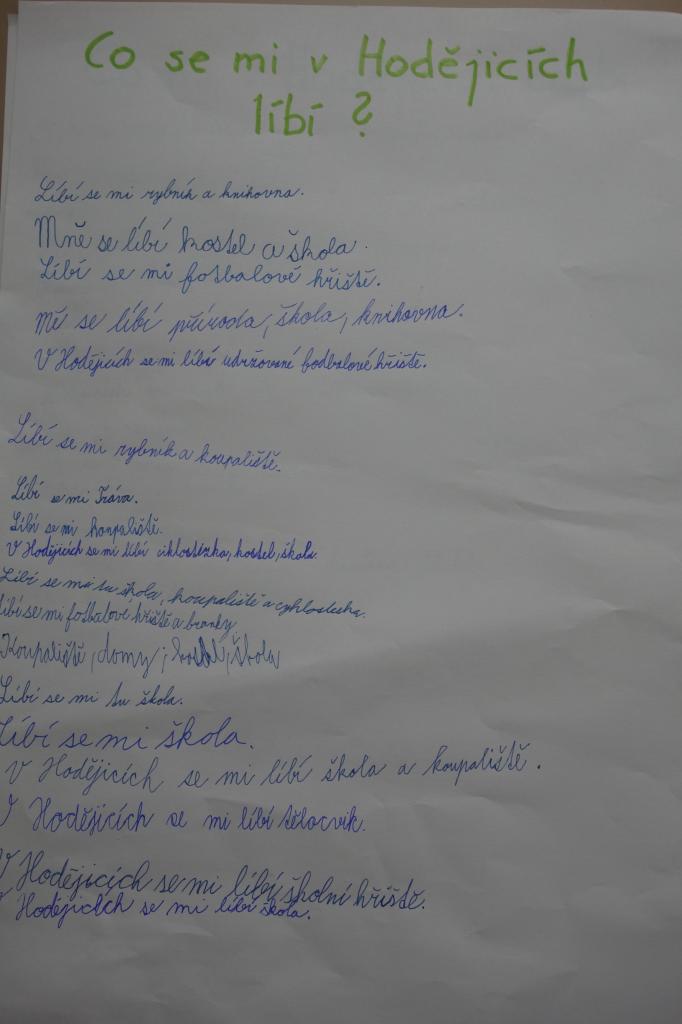 Co se mi v Hodějicích
líbí ?
Líbí se mi rybník a knihovna.
Mně se líbí kostel a škola.
Líbí se mi fotbalové hřiště.
Mě se líbí příroda, škola, knihovna.
V Hodějicích se mi líbí udržované fodbalové hřiště.
Líbí se mi rybník a koupaliště.
Líbí se mi Tráva.
Líbí se mi koupaliště.
V Hodějicích se mi líbí ciklostézka, kostel, škola.
Líbí se mi tu škola, koupaliště a cyklosteska.
Líbí se mi fotbalové hřiště a branky
Koupaliště, domy, kostel, škola
Líbí se mi tu škola.
Líbí se mi škola.
V Hodějicích se mi líbí škola a koupaliště.
V Hodějicích se mi líbí tělocvik.
V Hodějicích se mi líbí školní hřiště.
V Hodějicích se mi líbí škola.